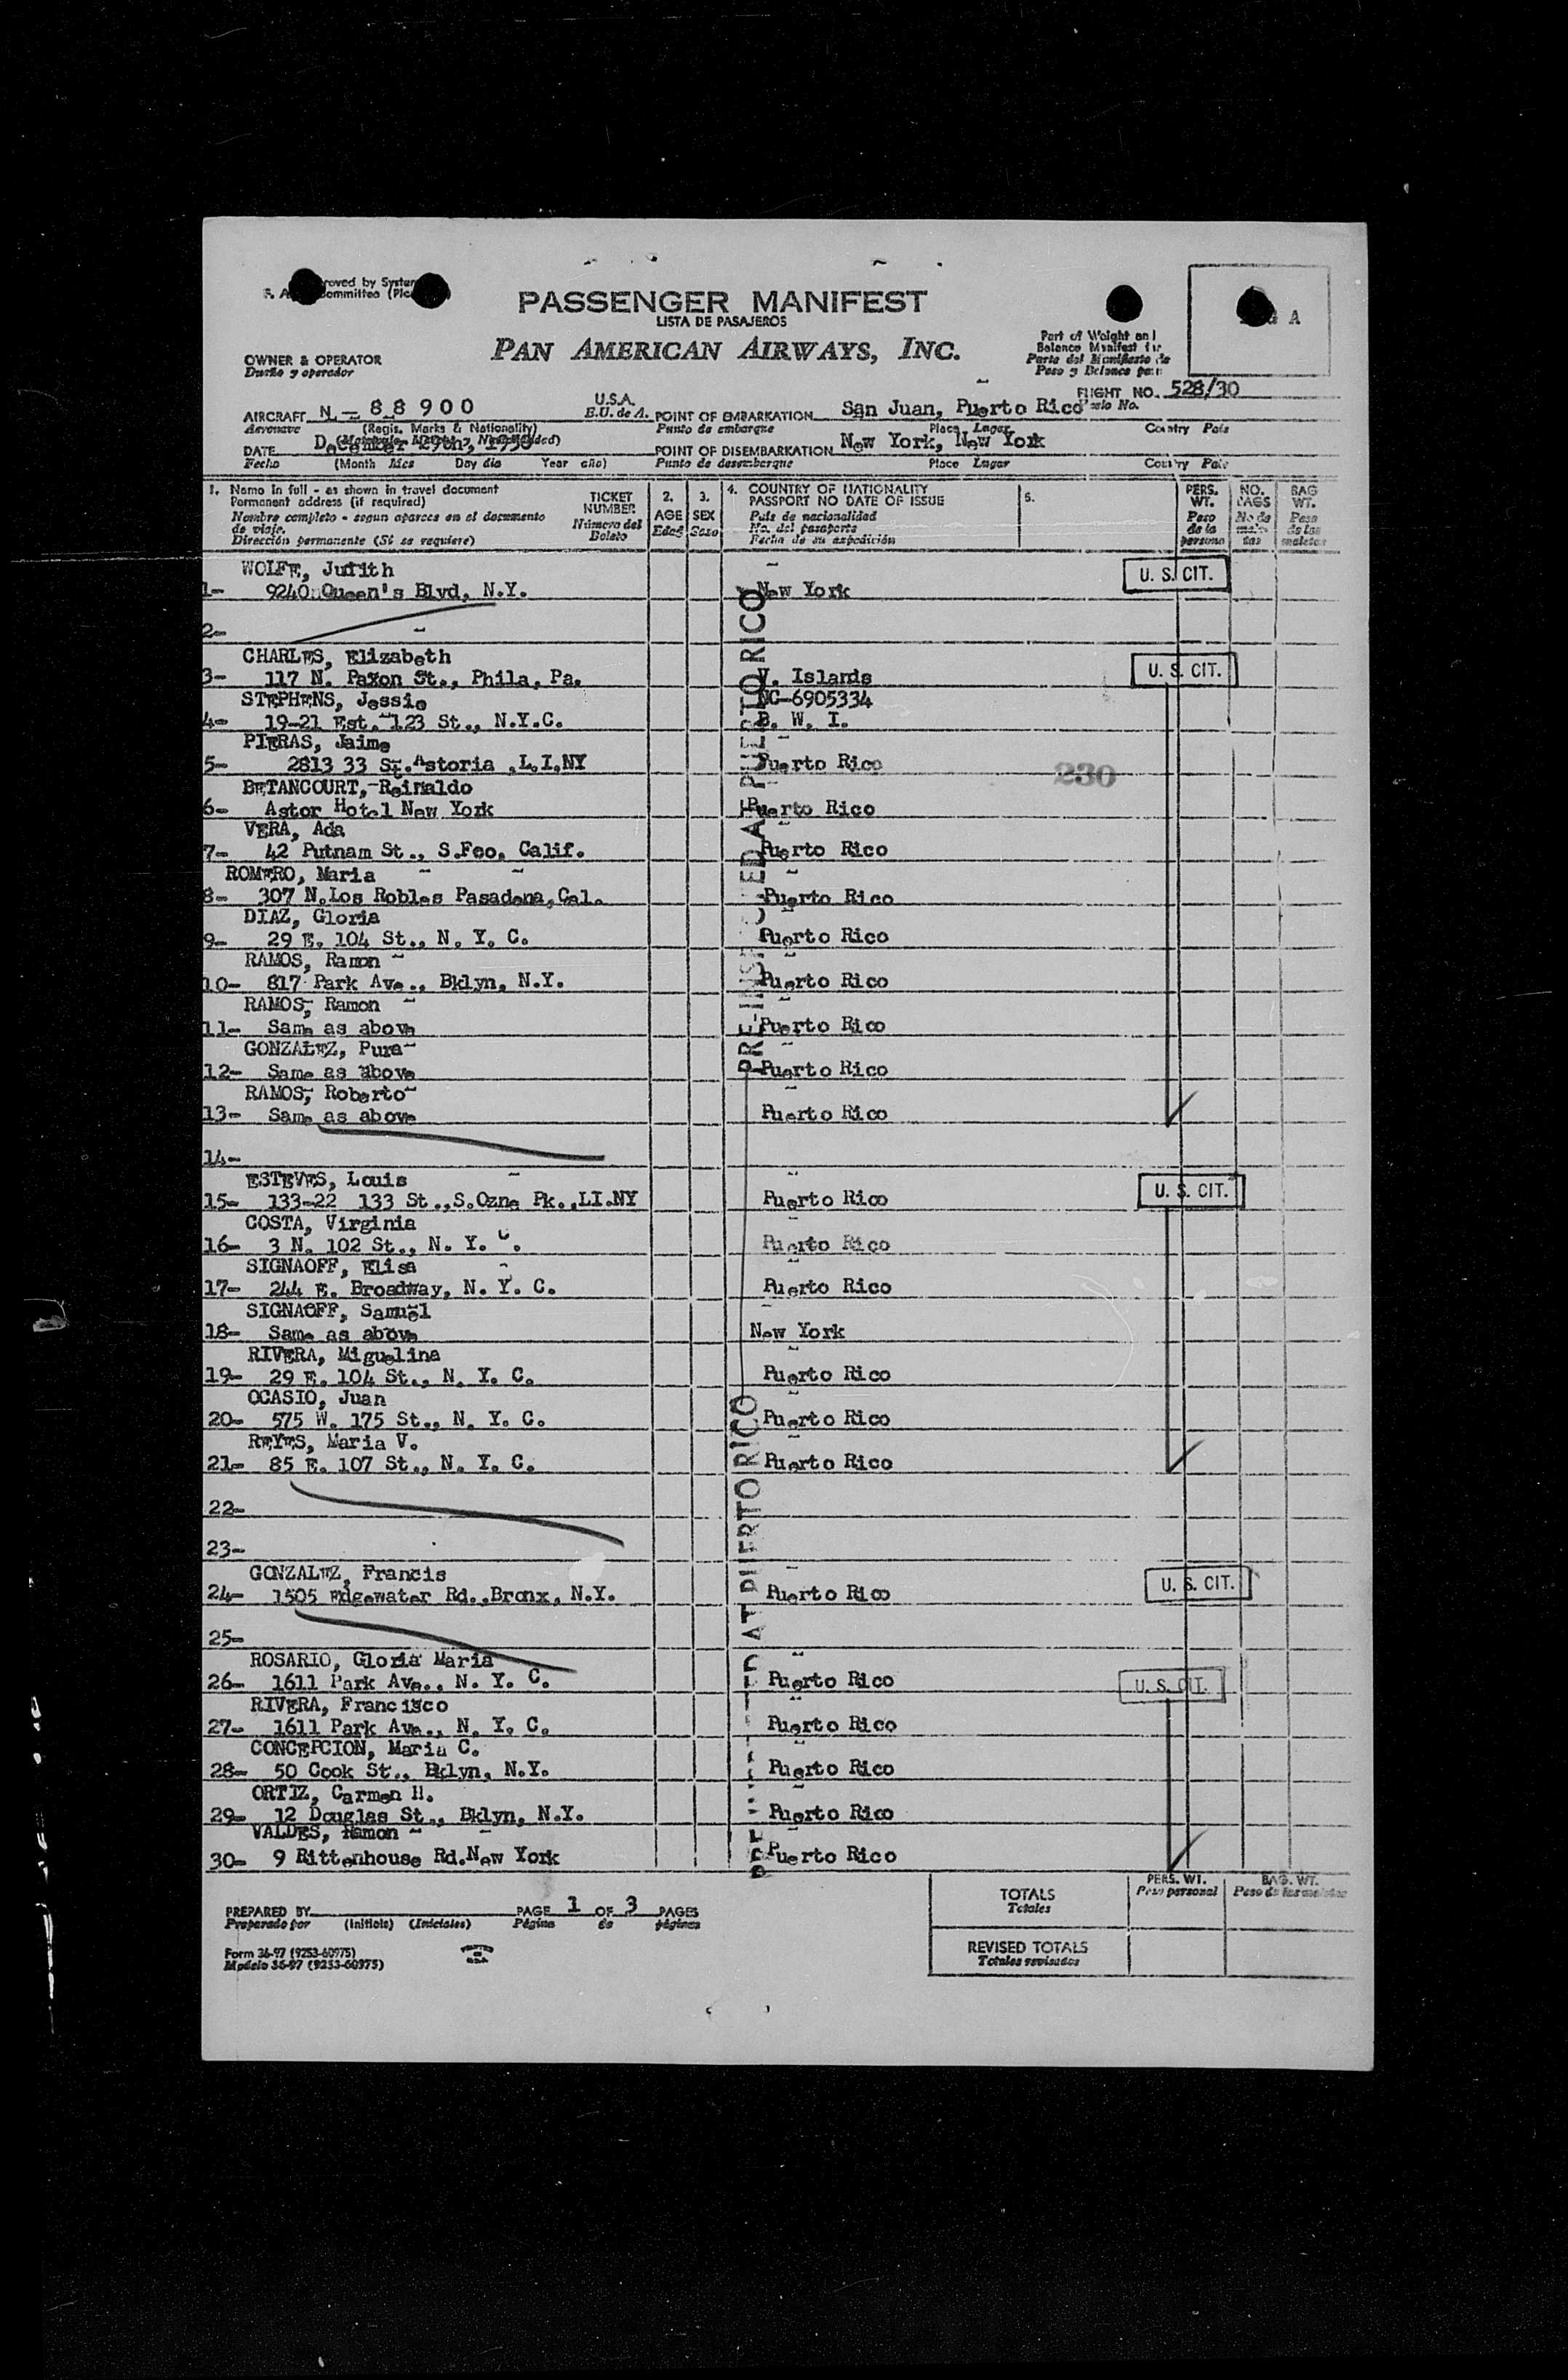 PASSENGER MANIFEST
LISTA DE PASAJEROS
PAN AMERICAN AIRWAYS, INC.
OWNER & OPERATOR
Dueño y operador
Part of Weight and
Balance Manifest for
Parte del Manifiesto de
Peso y Balance para
FLIGHT NO. 528/30
AIRCRAFT N - 88900 U.S.A.
Aeronave (Regis. Marks & Nationality) E.U. de A.
POINT OF EMBARKATION San Juan, Puerto Rico
Punto de embarque Place Lugar Country País
DATE December 29th, 1950
Fecha (Month Mes Day día Year año)
POINT OF DISEMBARKATION New York, New York
Punto de desembarque Place Lugar Country País
1. Name in full - as shown in travel document
Permanent address (if required)
Nombre completo - segun aparece en el documento
de viaje.
Dirección permanente (Si se requiere)
TICKET NUMBER
Número del Boleto
2. AGE Edad
3. SEX Sexo
4. COUNTRY OF NATIONALITY
PASSPORT NO DATE OF ISSUE
País de nacionalidad
No. del pasaporte
Fecha de su expedición
5.
PERS. WT.
Peso de la persona
NO. BAGS
No de maletas
BAG WT.
Peso de las maletas
WOLFE, Judith
1- 9240 Queen's Blvd, N.Y. New York U. S. CIT.
2-
CHARLES, Elizabeth
3- 117 N. Paxon St., Phila, Pa. V. Islands U. S. CIT.
STEPHENS, Jessie NC-6905334
4- 19-21 Est. 123 St., N.Y.C. B. W. I.
PIERAS, Jaime
5- 2813 33 St. Astoria ,L.I.NY Puerto Rico 230
BETANCOURT, Reinaldo
6- Astor Hotel New York Puerto Rico
VERA, Ada
7- 42 Putnam St., S.Fco, Calif. Puerto Rico
ROMERO, Maria
8- 307 N.Los Robles Pasadena,Cal. Puerto Rico
DIAZ, Gloria
9- 29 E. 104 St., N. Y. C. Puerto Rico
RAMOS, Ramon
10- 817 Park Ave., Bklyn, N.Y. Puerto Rico
RAMOS, Ramon
11- Same as above Puerto Rico
GONZALEZ, Pura
12- Same as above Puerto Rico
RAMOS, Roberto
13- Same as above Puerto Rico
14-
ESTEVES, Louis
15- 133-22 133 St.,S.Ozne Pk.,LI.NY Puerto Rico U. S. CIT.
COSTA, Virginia
16- 3 N. 102 St., N. Y. C. Puerto Rico
SIGNAOFF, Elisa
17- 244 E. Broadway, N. Y. C. Puerto Rico
SIGNAOFF, Samuel
18- Same as above New York
RIVERA, Miguelina
19- 29 E. 104 St., N. Y. C. Puerto Rico
OCASIO, Juan
20- 575 W. 175 St., N. Y. C. Puerto Rico
REYES, Maria V.
21- 85 E. 107 St., N. Y. C. Puerto Rico
22-
23-
GONZALEZ, Francis
24- 1505 Edgewater Rd.,Bronx, N.Y. Puerto Rico U. S. CIT.
25-
ROSARIO, Gloria Maria
26- 1611 Park Ave., N. Y. C. Puerto Rico U. S. CIT.
RIVERA, Francisco
27- 1611 Park Ave., N. Y. C. Puerto Rico
CONCEPCION, Maria C.
28- 50 Cook St., Bklyn, N.Y. Puerto Rico
ORTIZ, Carmen H.
29- 12 Douglas St., Bklyn, N.Y. Puerto Rico
VALDES, Ramon
30- 9 Rittenhouse Rd.New York Puerto Rico
PREPARED BY PAGE 1 OF 3 PAGES
Preparado por (Initials) (Iniciales) Página de páginas
TOTALS
Totales
PERS. WT.
Peso personal
BAG. WT.
Peso de las maletas
REVISED TOTALS
Totales revisados
Form 36-97 (9253-60975)
Modelo 36-97 (9253-60975)